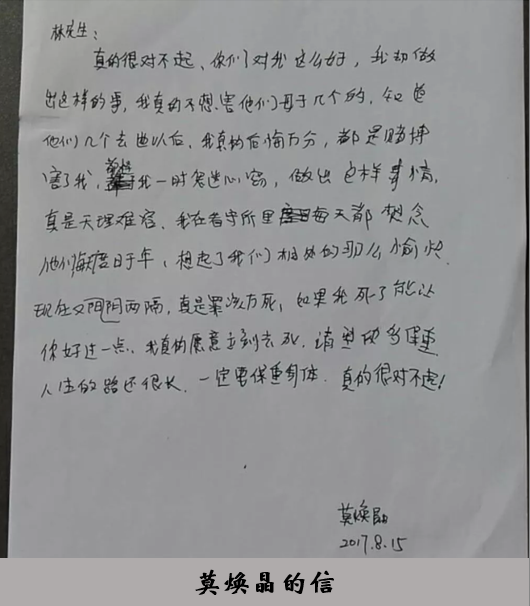 林先生：
真的很对不起、你们对我这么好，我却做
出这样的事，我真的不想害他们母子几个的，知道
他们几个去世以后，我真的后悔万分，都是赌博
害了我，我一时鬼迷心窍，做出这样事情，
真是天理难容、我在看守所里每天都想念
他们悔度日于年，想起了我们相处的那么愉快、
现在又阴阳两隔，真是罪该万死，如果我死了能让
你好过一点、我真的愿意立刻去死、请望你多保重
人生的路还很长、一定要保重身体、真的很对不起！
莫焕晶
2017.8.15
莫焕晶的信